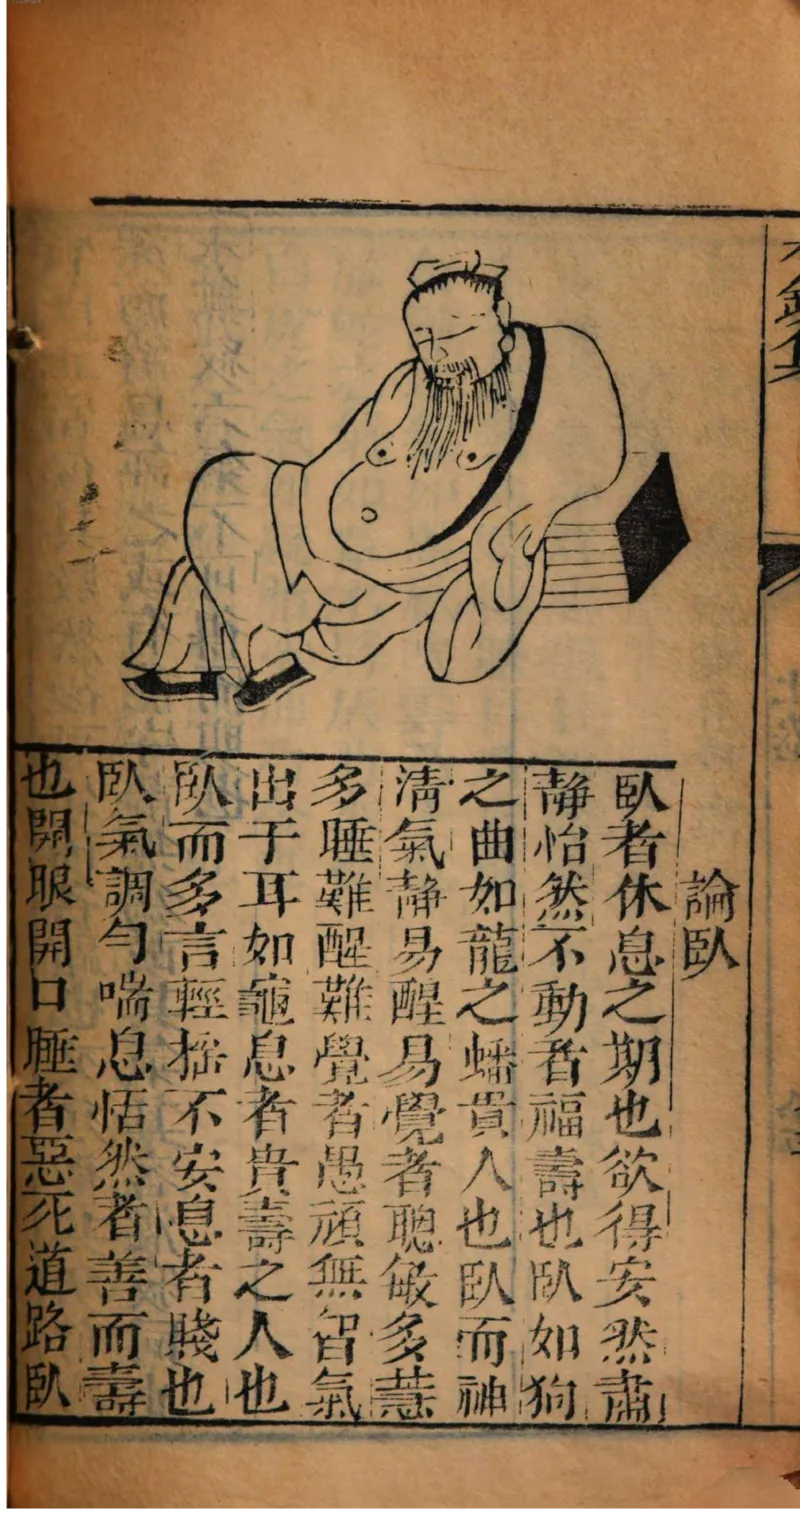 論臥
臥者休息之期也欲得安然肅
靜怡然不動者福壽也臥如狗
之曲如龍之蟠貴人也臥而神
清氣靜易醒易覺者聰敏多慧
多睡難醒難覺者愚頑無智氣
出于耳如龜息者貴壽之人也
臥而多言輕搖不安息者賤也
臥氣調勻喘息恬然者善而壽
也開眼開口睡者惡死道路臥